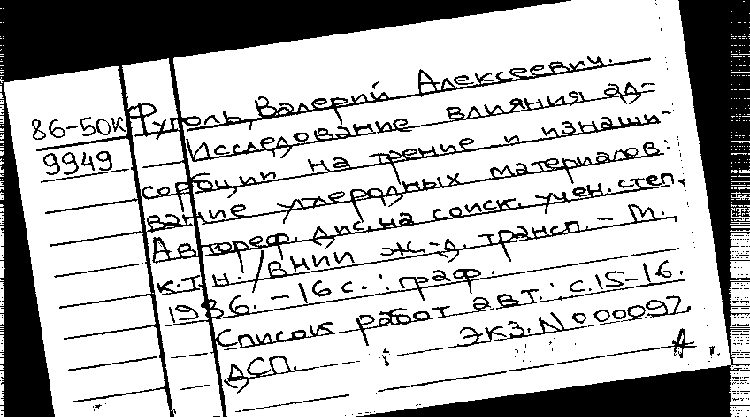 86-50К
9949
Фуголь, Валерий Алексеевич.
Исследование влияния ад=
сорбции на трение и изнаши-
вание углеродных материалов:
Автореф. дис. на соиск. учен. степ.
к.т.н. / ВНИИ ж.-д. трансп. - М.,
1986. - 16 с.: граф.
Список работ авт.: с. 15-16.
ДСП. Экз. N 000097.